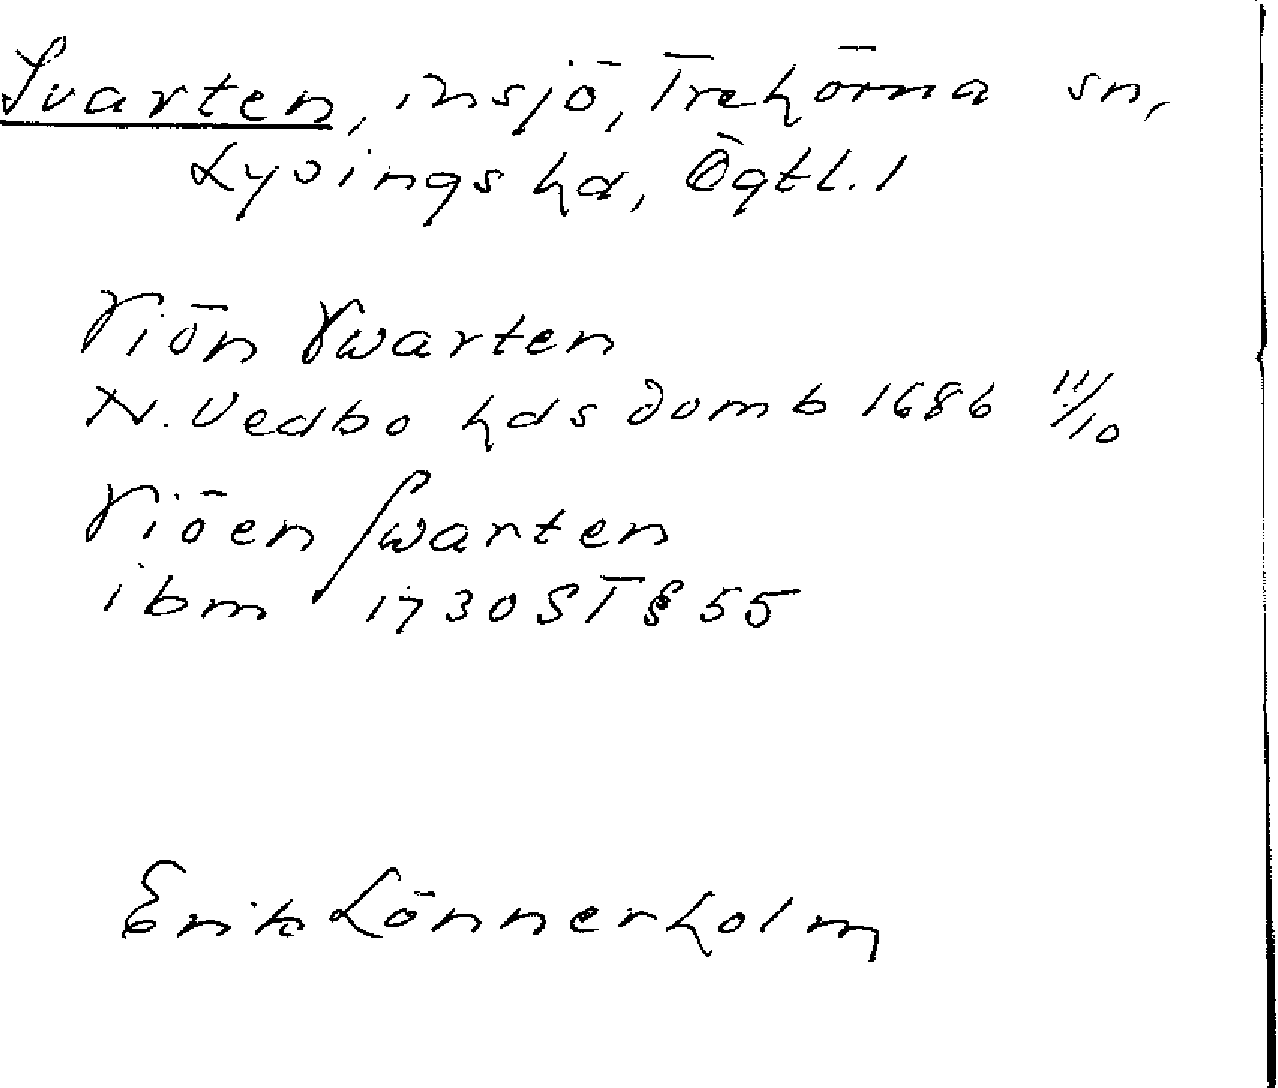 Svarten, insjö, Trehörna sn,
Lysings hd, Ögtl.
Siön Swarten
N. Vedbo hds domb 1686 11/10
Siöen Swarten
ibm 1730 ST § 55
Erik Lönnerholm